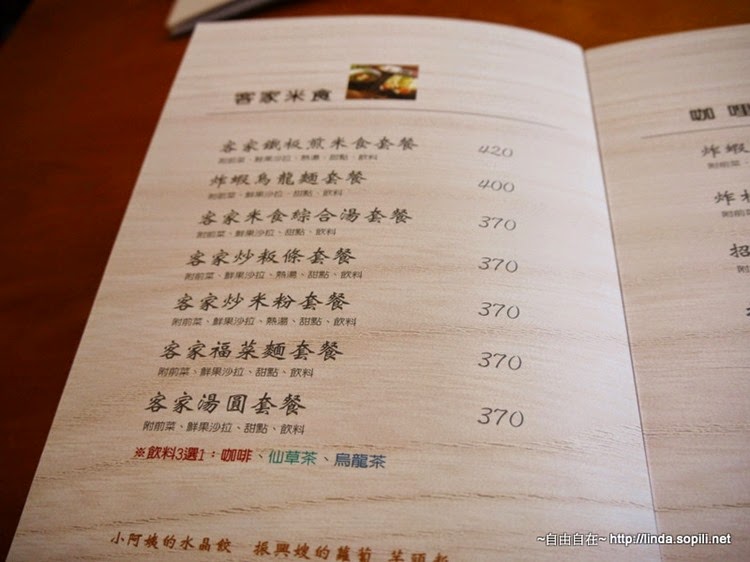 客家米食
客家鐵板煎米食套餐 420
附前菜、鮮果沙拉、熱湯、甜點、飲料
炸蝦烏龍麵套餐 400
附前菜、鮮果沙拉、甜點、飲料
客家米食綜合湯套餐 370
附前菜、鮮果沙拉、甜點、飲料
客家炒粄條套餐 370
附前菜、鮮果沙拉、熱湯、甜點、飲料
客家炒米粉套餐 370
附前菜、鮮果沙拉、熱湯、甜點、飲料
客家福菜麵套餐 370
附前菜、鮮果沙拉、甜點、飲料
客家湯圓套餐 370
附前菜、鮮果沙拉、甜點、飲料
※飲料3選1：咖啡、仙草茶、烏龍茶
小阿姨的水晶餃 振興嫂的蘿蔔
咖
炸蝦
附前
炸
附
招
~自由自在~ http://linda.sopili.net